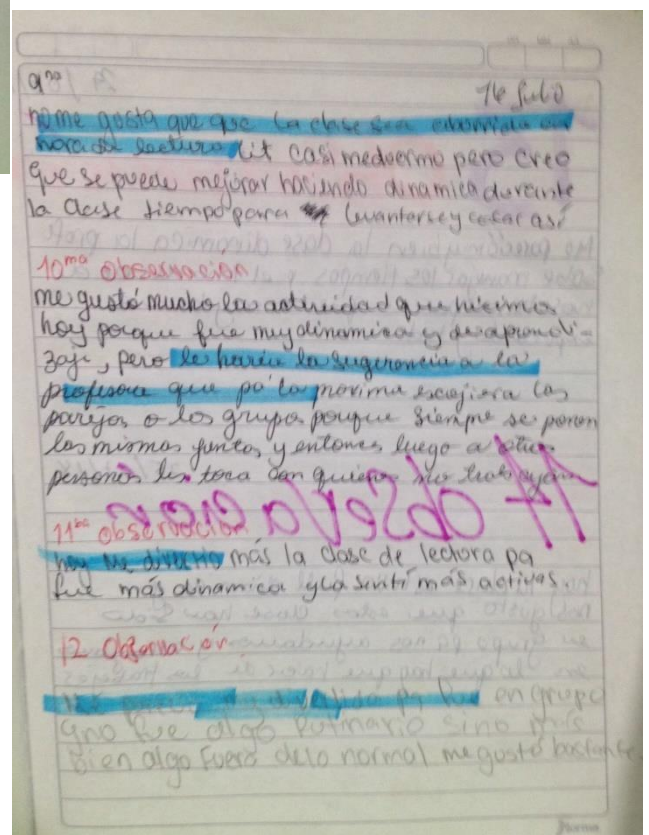 9na
16 Julio
no me gusta que que la clase sea aburrida en
hora de lectura Lit casi me duermo pero creo
que se puede mejorar haciendo dinamica durante
la clase tiempo para levantarse y cosas así
10ma Observación
me gustó mucho la actividad que hicimos
hoy porque fue muy dinamica y de aprendi-
zaje, pero le haria la sugerencia a la
profesora que pa la proxima escojiera las
parejas o los grupo porque siempre se ponen
las mismas juntas y entonces luego a otras
personas les toca con quienes no trabajan
11ba observación
hoy me divertio más la clase de lectora pa
fue más dinamica y la sentí más activas.
12 Observación
en grupo
y no fue algo rutinario sino más
bien algo fuera de lo normal me gustó bastante.